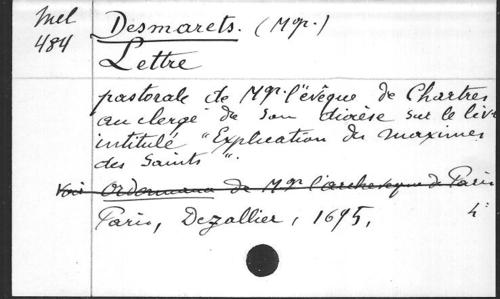 Mel
484
Desmarets. (Mgr.)
Lettre
pastorale de Mgr. l'évêque de Chartres
au clergé de son diocèse sur le livr
intitulé "Explication des maximes
des Saints".
Voir Ordonnance de Mgr l'archevêque de Paris
Paris, Dezallier, 1695, 4°